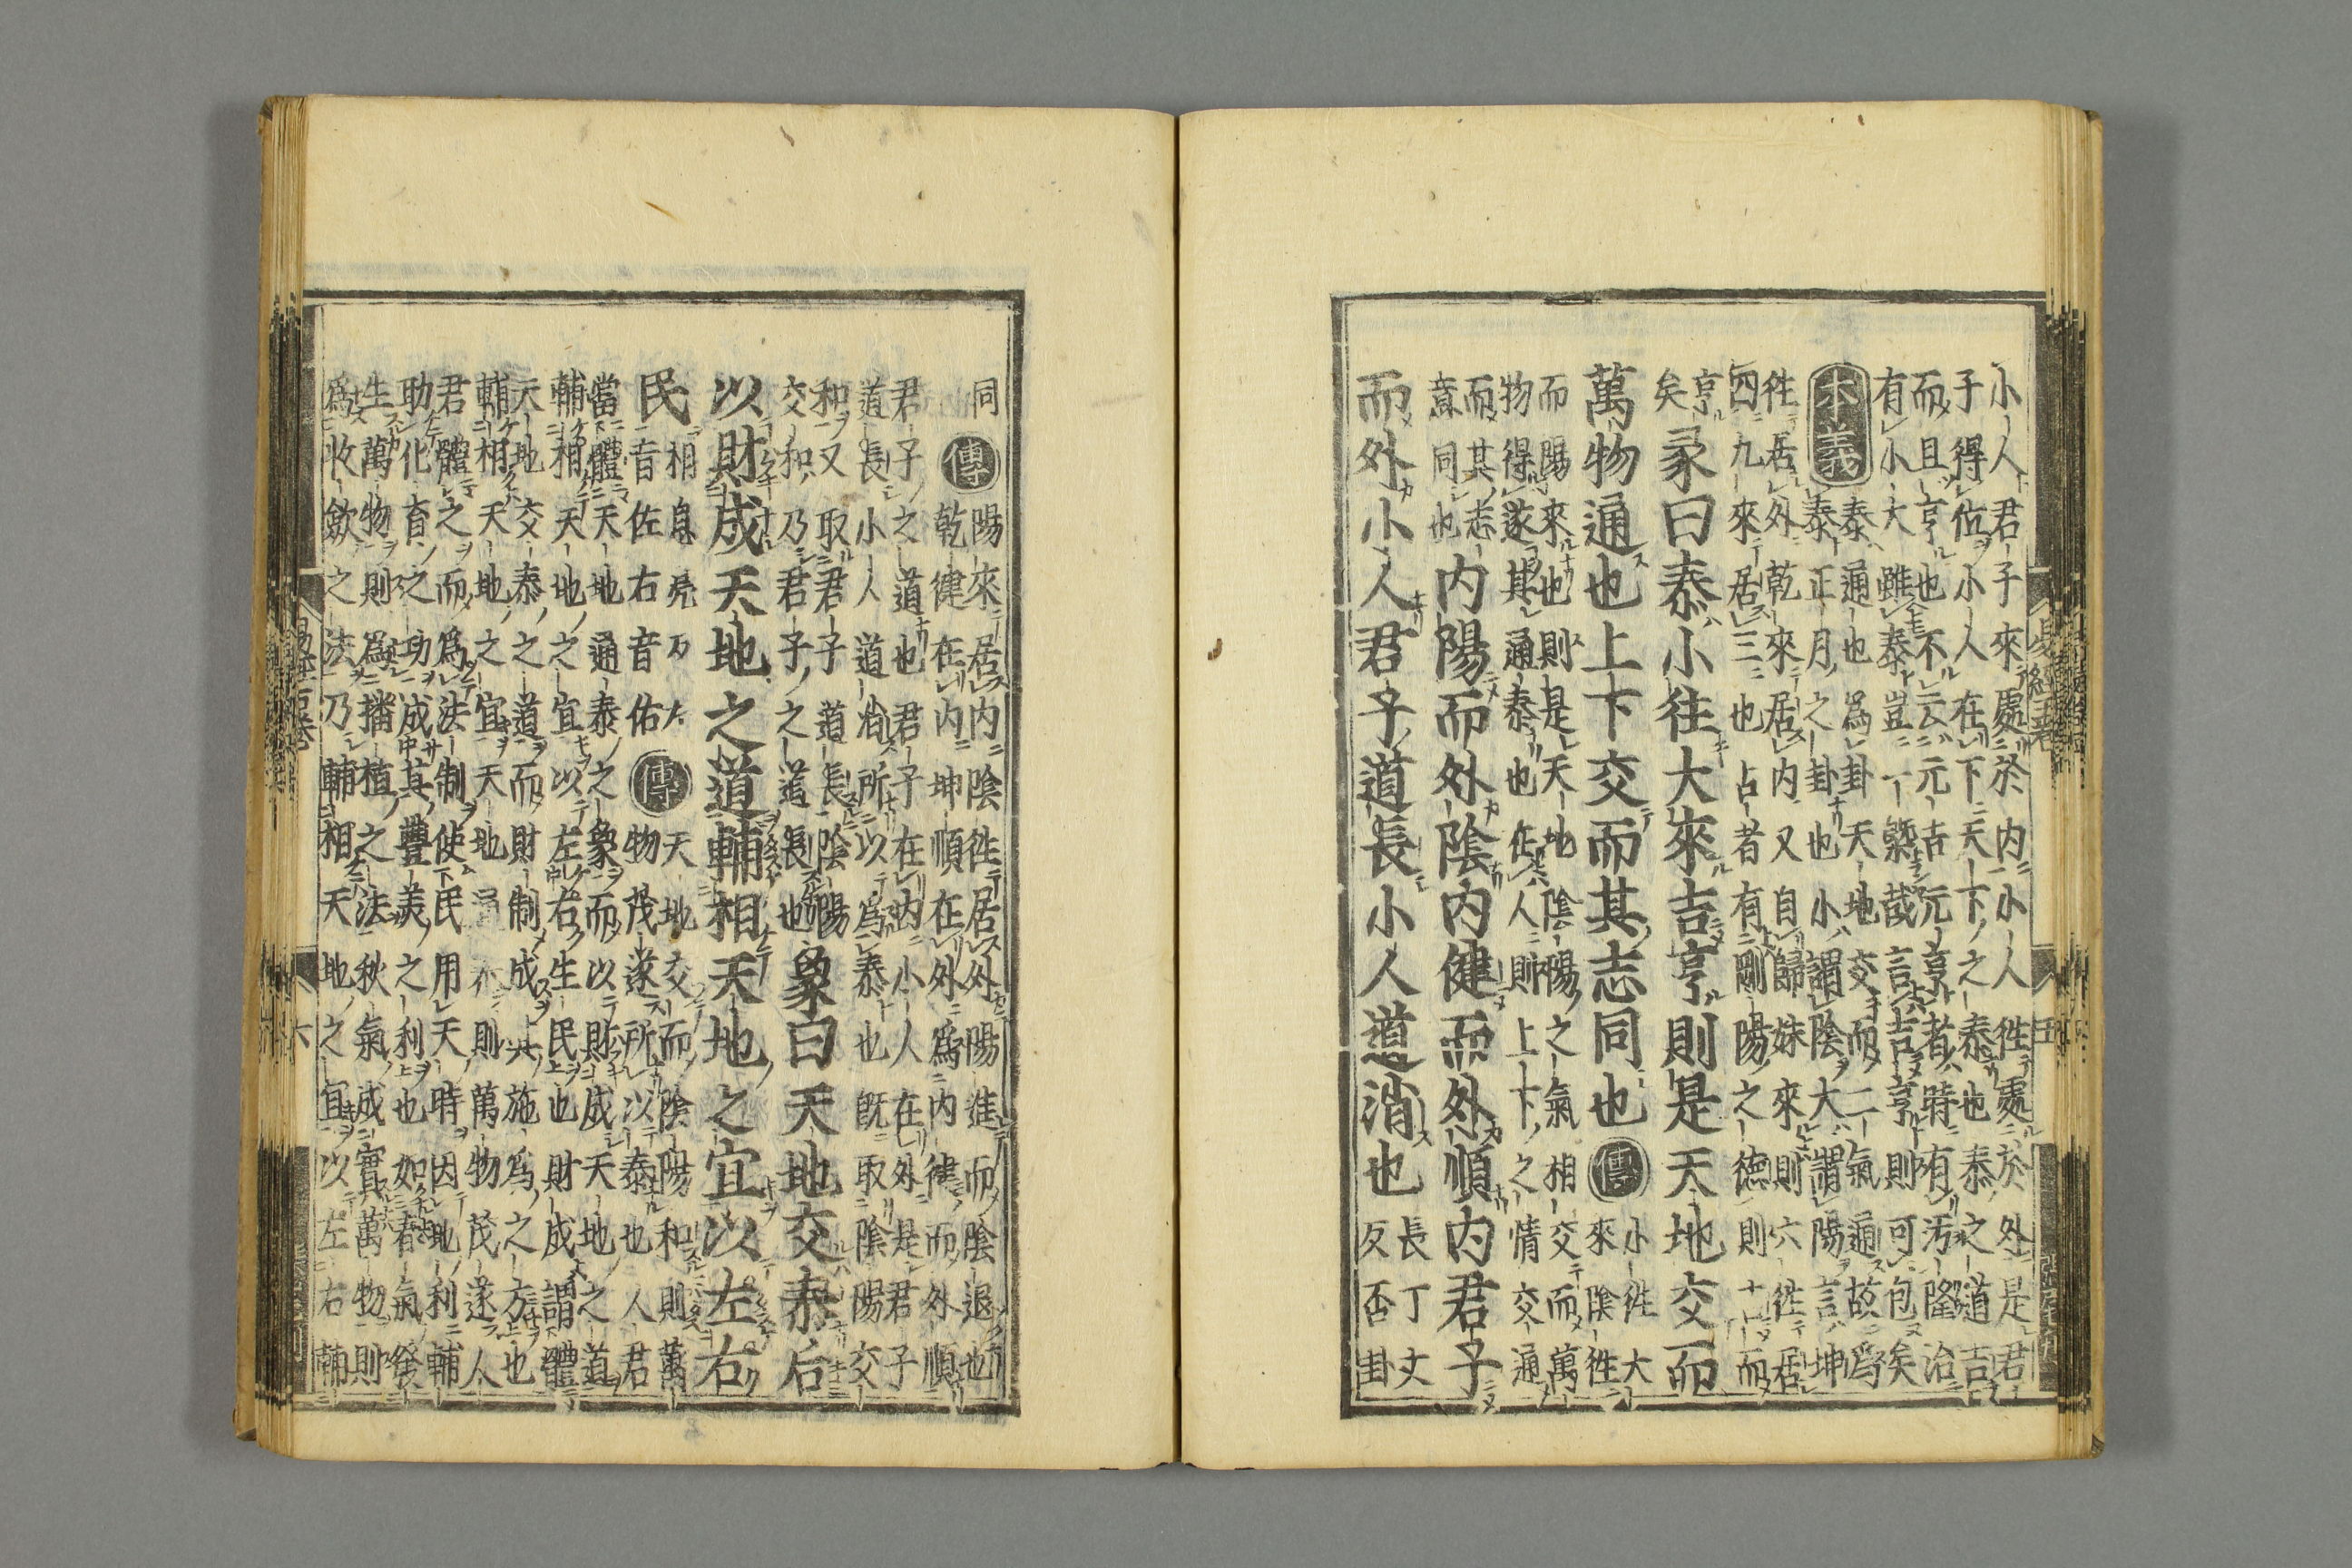 小人君子來處於内小人往處於外是君
子得位小人在下天下之泰也泰之道吉
而且亨也不云元吉元亨者時有汚隆治
有小大雖泰豈一槩哉言吉亨則可包矣
本義
泰通也爲卦天地交而二氣通故爲
泰正月之卦也小謂陰大謂陽言坤
往居外乾來居内又自歸妹來則六往居
四九來居三也占者有剛陽之德則吉而
亨
矣
彖曰泰小往大來吉亨則是天地交而
萬物通也上下交而其志同也
傳
小往大
來陰往
而陽來也則是天地陰陽之氣相交而萬
物得遂其通泰也在人則上下之情交通
而其志
意同也
内陽而外陰内健而外順内君子
而外小人君子道長小人道消也
長丁丈
反否卦
同
傳
陽來居内陰往居外陽進而陰退也
乾健在内坤順在外爲内健而外順
君子之道也君子在内小人在外是君子
道長小人道消所以爲泰也既取陰陽交
和又取君子道長陰陽
交和乃君子之道長也
象曰天地交泰后
以財成天地之道輔相天地之宜以左右
民
相息亮反左
音佐右音佑
傳
天地交而陰陽和則萬
物茂遂所以泰也人君
當體天地通泰之象而以財成天地之道
輔相天地之宜以左右生民也財成謂體
天地交泰之道而財制成其施爲之方也
輔相天地之宜天地通泰則萬物茂遂人
君體之而爲法制使民用天時因地利輔
助化育之功成其豐美之利也如春氣發
生萬物則爲播植之法秋氣成實萬物則
爲收斂之法乃輔相天地之宜以左右輔
易經古卷
六
五